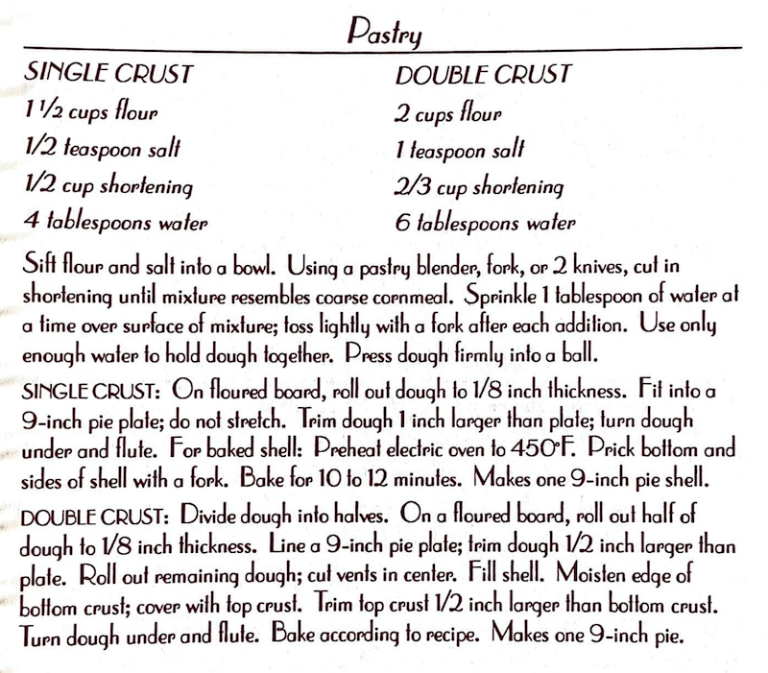 Pastry
SINGLE CRUST
1 1/2 cups flour
1/2 teaspoon salt
1/2 cup shortening
4 tablespoons water
DOUBLE CRUST
2 cups flour
1 teaspoon salt
2/3 cup shortening
6 tablespoons water
Sift flour and salt into a bowl. Using a pastry blender, fork, or 2 knives, cut in
shortening until mixture resembles coarse cornmeal. Sprinkle 1 tablespoon of water at
a time over surface of mixture; toss lightly with a fork after each addition. Use only
enough water to hold dough together. Press dough firmly into a ball.
SINGLE CRUST: On floured board, roll out dough to 1/8 inch thickness. Fit into a
9-inch pie plate; do not stretch. Trim dough 1 inch larger than plate; turn dough
under and flute. For baked shell: Preheat electric oven to 450°F. Prick bottom and
sides of shell with a fork. Bake for 10 to 12 minutes. Makes one 9-inch pie shell.
DOUBLE CRUST: Divide dough into halves. On a floured board, roll out half of
dough to 1/8 inch thickness. Line a 9-inch pie plate; trim dough 1/2 inch larger than
plate. Roll out remaining dough; cut vents in center. Fill shell. Moisten edge of
bottom crust; cover with top crust. Trim top crust 1/2 inch larger than bottom crust.
Turn dough under and flute. Bake according to recipe. Makes one 9-inch pie.